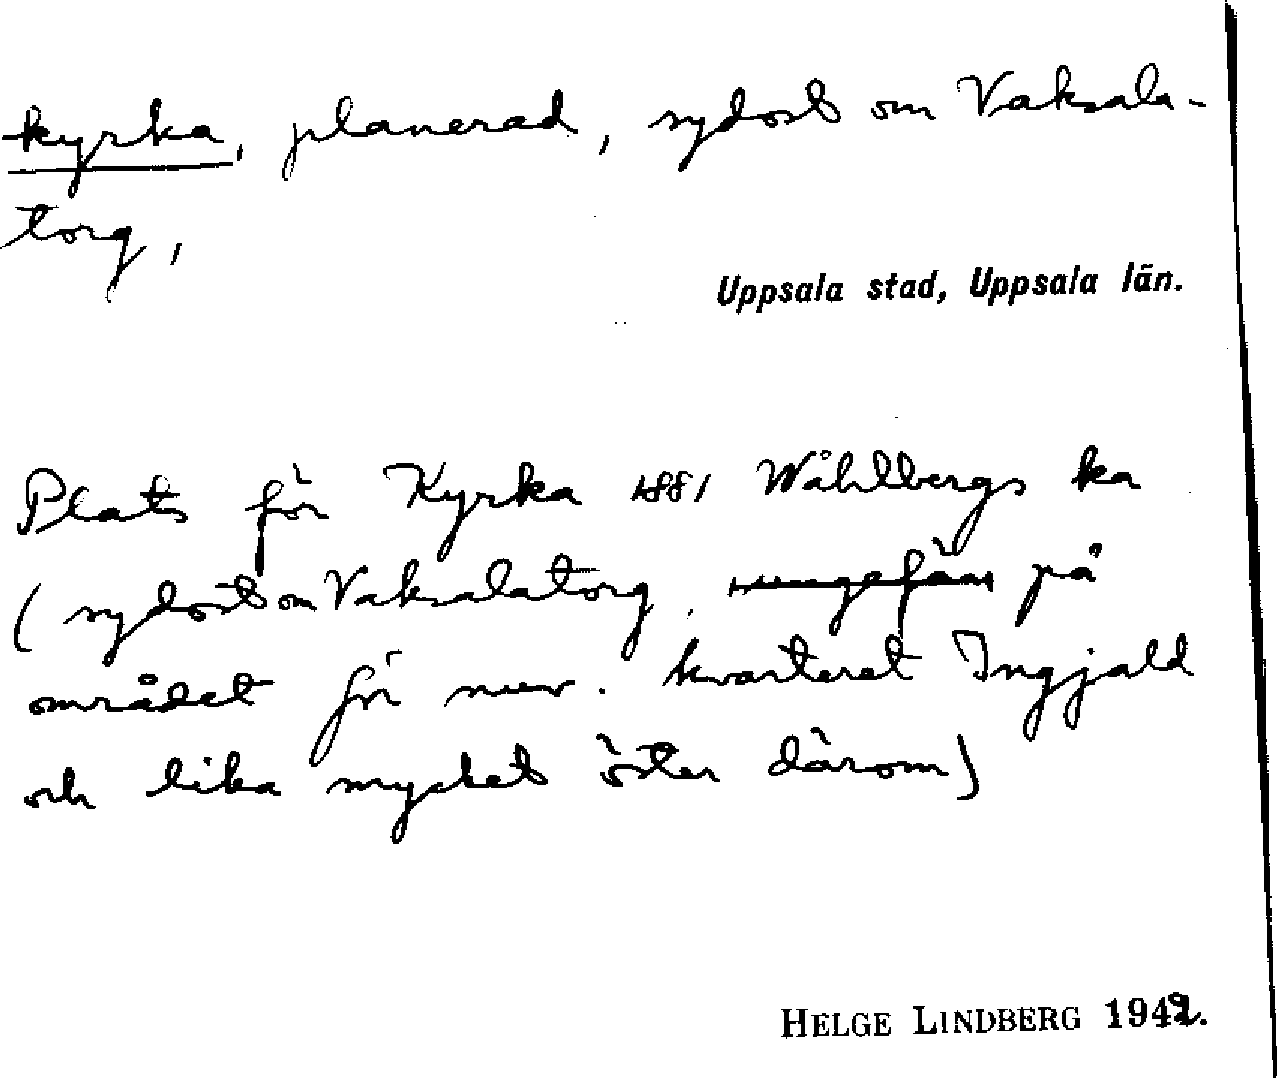 kyrka, planerad, sydost om Vaksala-
torg,
Uppsala stad, Uppsala län.
Plats för Kyrka 1881 Wåhlbergs ka
(sydost om Vaksalatorg, ungefär på
området för nuv. kvarteret Ingjald
och lika mycket öster därom)
HELGE LINDBERG 1949.